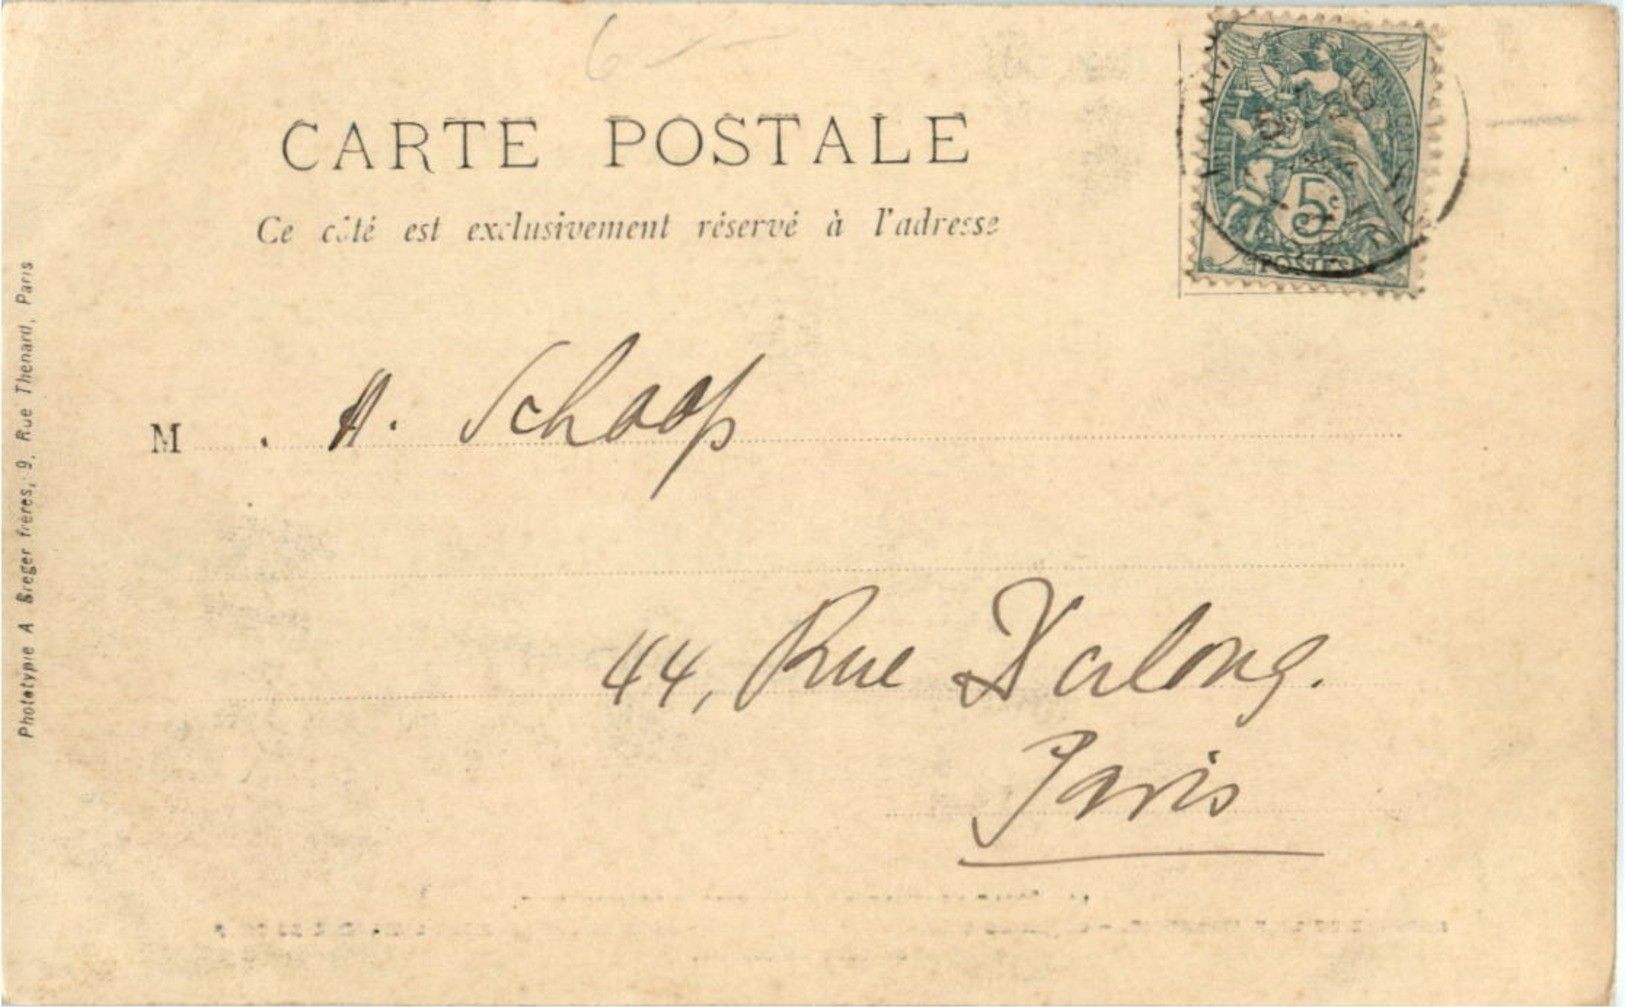 6
CARTE POSTALE
Ce côté est exclusivement réservé à l'adresse
5c
POSTES
M. A. Schoop
44, Rue Dulong.
Paris
Phototypie A Breger frères, 9, Rue Thenard, Paris